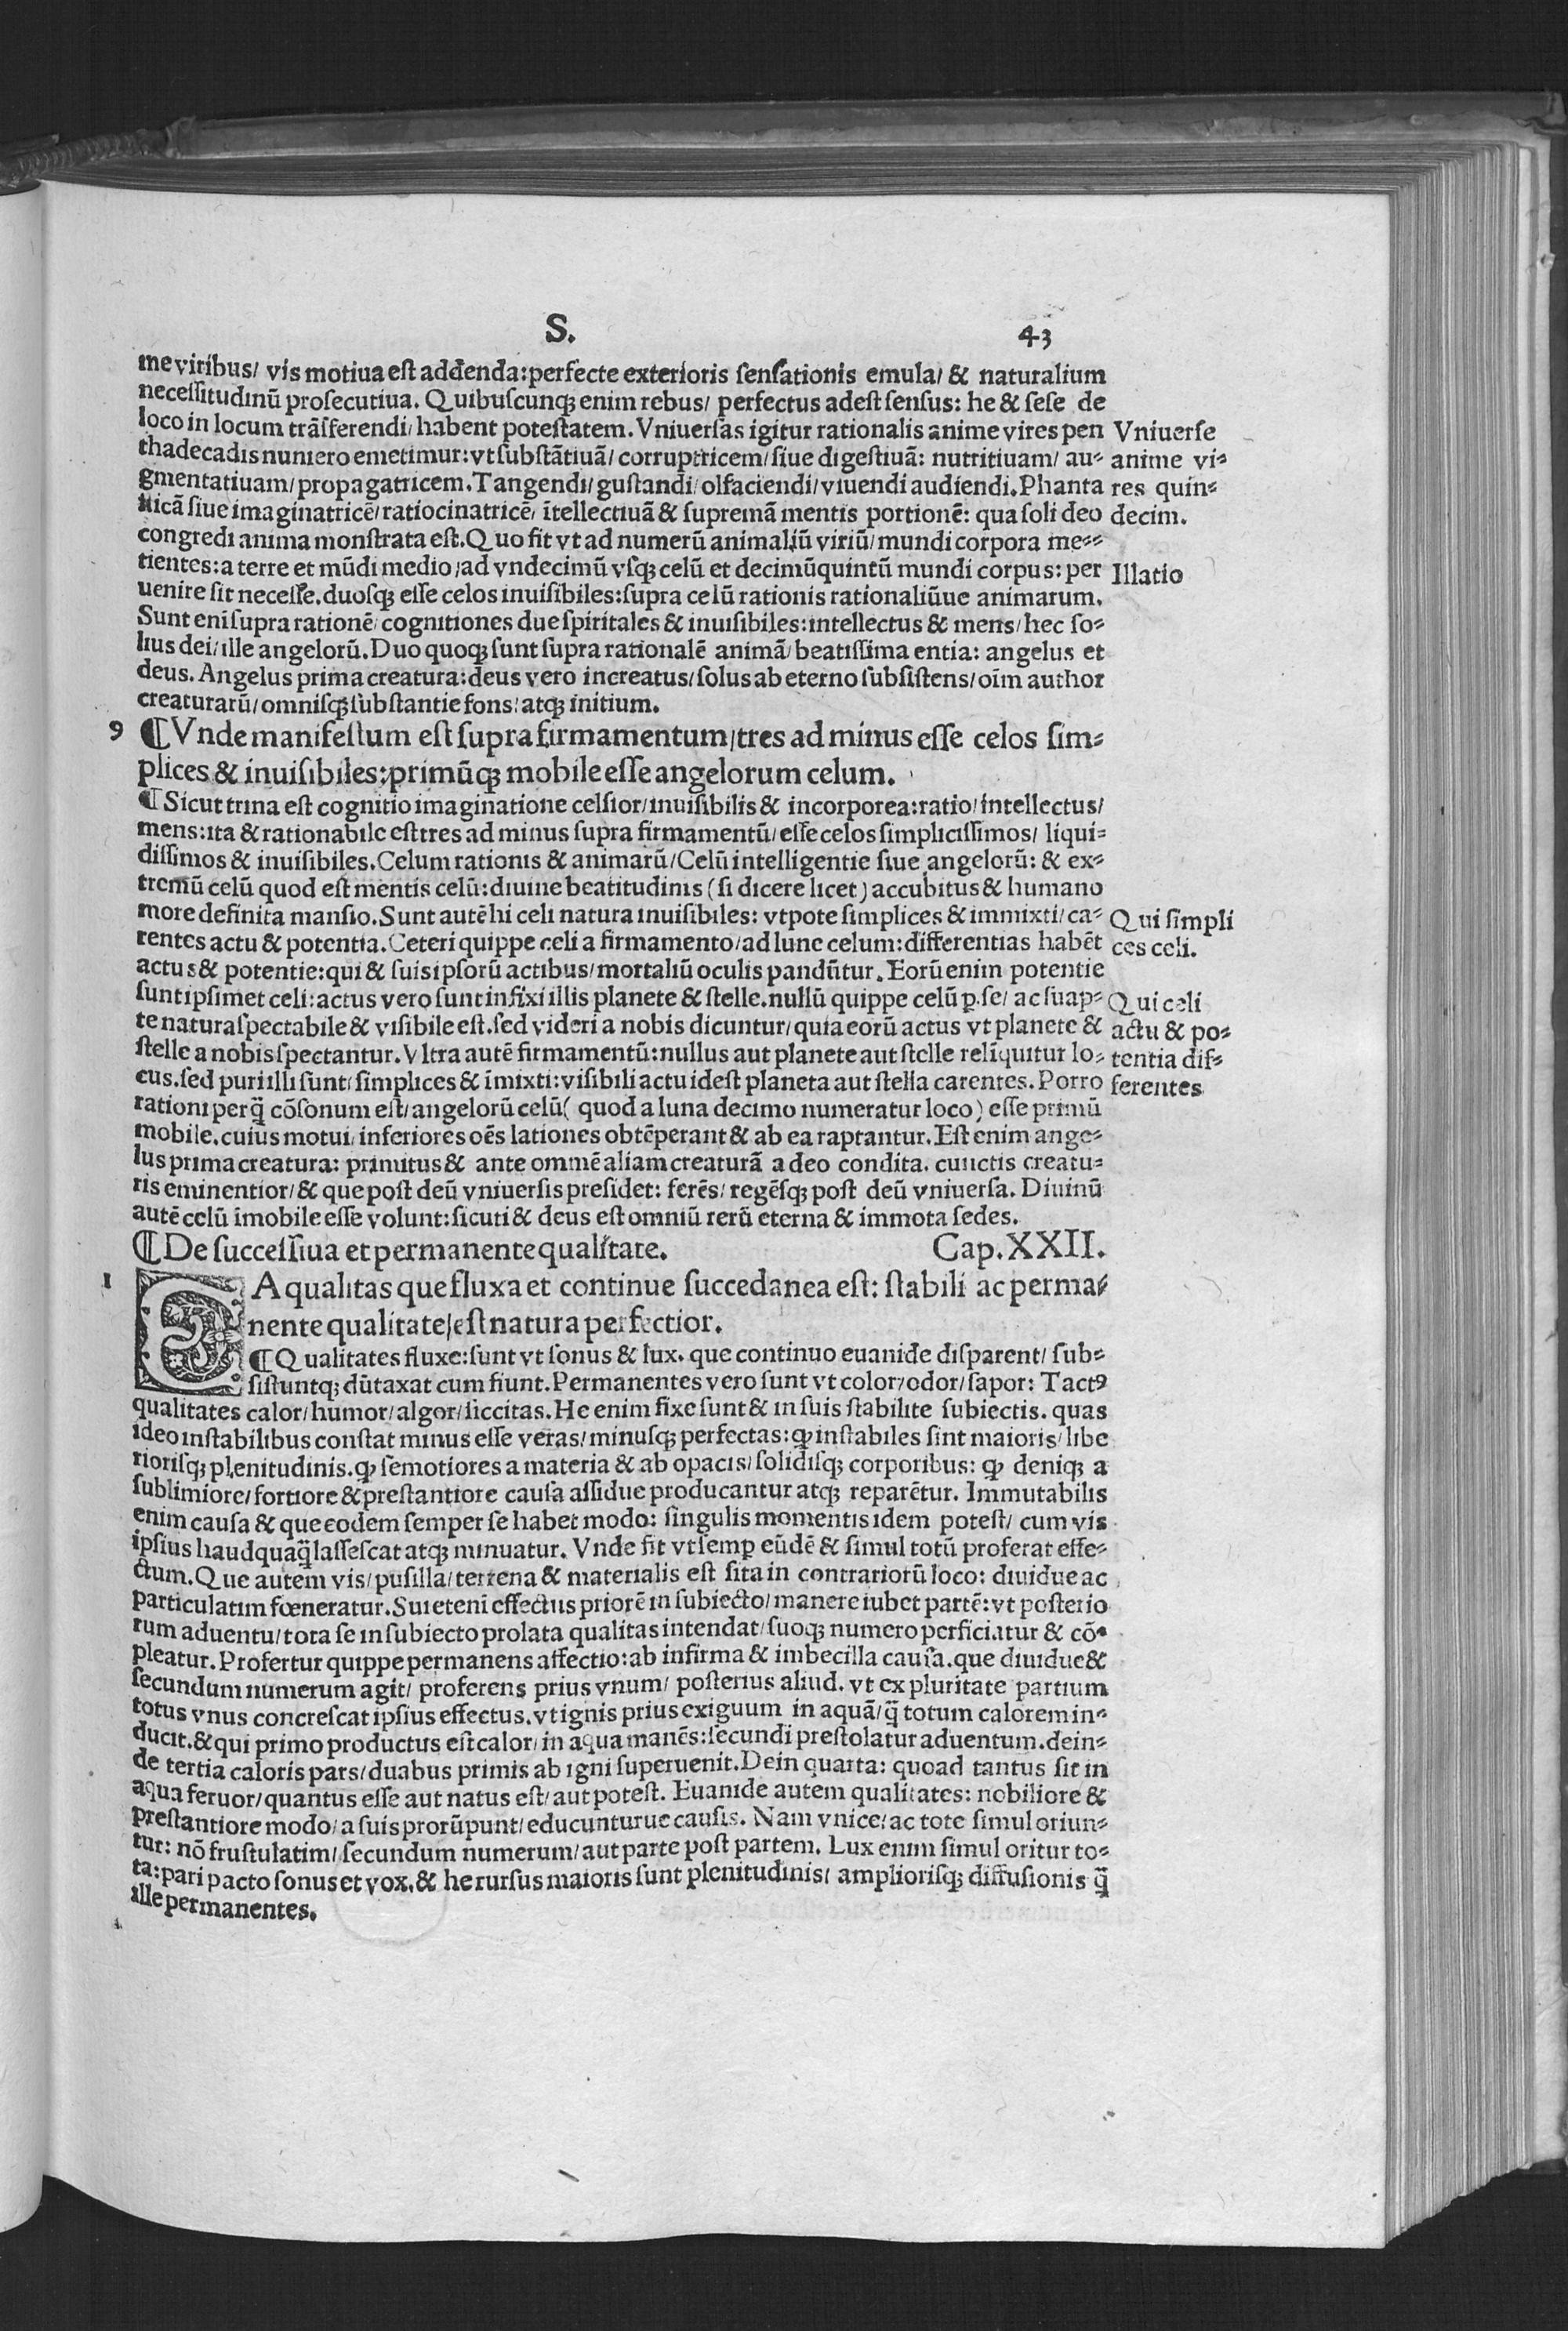 S.
43
me viribus/ vis motiua est addenda: perfecte exterioris sensationis emula/ & naturalium
necessitudinū prosecutiua. Quibuscunqꝫ enim rebus/ perfectus adest sensus: he & sese de
loco in locum trāsferendi/ habent potestatem. Vniuersas igitur rationalis anime vires pen
thadecadis numero emetimur: vt substātiuā/ corruptricem/ siue digestiuā: nutritiuam/ au-
gmentatiuam/ propagatricem. Tangendi/ gustandi/ olfaciendi/ viuendi audiendi. Phanta
sticā siue imaginatricē/ ratiocinatricē/ ītellectiuā & supremā mentis portionē: qua soli deo
congredi anima monstrata est. Quo fit vt ad numerū animaliū viriū/ mundi corpora me--
tientes: a terre et mūdi medio/ ad vndecimū vsqꝫ celū et decimūquintū mundi corpus: per
uenire sit necesse. duosqꝫ esse celos inuisibiles: supra celū rationis rationaliūue animarum.
Sunt eni supra rationē/ cognitiones due spiritales & inuisibiles: intellectus & mens/ hec so-
lius dei/ ille angelorū. Duo quoqꝫ sunt supra rationalē animā/ beatissima entia: angelus et
deus. Angelus prima creatura: deus vero increatus/ solus ab eterno subsistens/ oīm author
creaturarū/ omnisqꝫ substantie fons/ atqꝫ initium.
Vniuerse
anime vi-
res quin-
decim.
Illatio
9 ¶ Vnde manifestum est supra firmamentum/ tres ad minus esse celos sim-
plices & inuisibiles: primūqꝫ mobile esse angelorum celum.
¶ Sicut trina est cognitio imaginatione celsior/ inuisibilis & incorporea: ratio/ intellectus/
mens: ita & rationabile est tres ad minus supra firmamentū/ esse celos simplicissimos/ liqui-
dissimos & inuisibiles. Celum rationis & animarū/ Celū intelligentie siue angelorū: & ex-
tremū celū quod est mentis celū: diuine beatitudinis (si dicere licet) accubitus & humano
more definita mansio. Sunt autē hi celi natura inuisibiles: vtpote simplices & immixti/ ca-
rentes actu & potentia. Ceteri quippe celi a firmamento/ ad lune celum: differentias habēt
actus & potentie: qui & suis ipsorū actibus/ mortaliū oculis pandūtur. Eorū enim potentie
sunt ipsimet celi: actus vero sunt infixi illis planete & stelle. nullū quippe celū ꝑ se/ ac suap-
te natura spectabile & visibile est. sed videri a nobis dicuntur/ quia eorū actus vt planete &
stelle a nobis spectantur. Vltra autē firmamentū: nullus aut planete aut stelle relīquitur lo-
cus. sed puri illi sunt/ simplices & īmixti: visibili actu idest planeta aut stella carentes. Porro
rationi perq̄ cōsonum est/ angelorū celū ( quod a luna decimo numeratur loco) esse primū
mobile. cuius motui/ inferiores oēs lationes obtēperant & ab ea raptantur. Est enim ange-
lus prima creatura: primitus & ante omnē aliam creaturā a deo condita. cunctis creatu-
ris eminentior/ & que post deū vniuersis presidet: ferēs/ regēsqꝫ post deū vniuersa. Diuinū
autē celū īmobile esse volunt: sicuti & deus est omniū rerū eterna & immota sedes.
Qui simpli
ces celi.
Qui celi
actu & po-
tentia dif-
ferentes
¶ De successiua et permanente qualitate. Cap. XXII.
1 EA qualitas que fluxa et continue succedanea est: stabili ac perma-
nente qualitate/ est natura perfectior.
¶ Qualitates fluxe: sunt vt sonus & lux. que continuo euanide disparent/ sub-
sistuntqꝫ dūtaxat cum fiunt. Permanentes vero sunt vt color/ odor/ sapor: Tactꝰ
qualitates calor/ humor/ algor/ siccitas. He enim fixe sunt & in suis stabilite subiectis. quas
ideo instabilibus constat minus esse veras/ minusqꝫ perfectas: ꝙ instabiles sint maioris/ libe
riorisqꝫ plenitudinis. ꝙ semotiores a materia & ab opacis/ solidisqꝫ corporibus: ꝙ deniqꝫ a
sublimiore/ fortiore & prestantiore causa assidue producantur atqꝫ reparētur. Immutabilis
enim causa & que eodem semper se habet modo: singulis momentis idem potest/ cum vis
ipsius haudquaq̄ lassescat atqꝫ minuatur. Vnde fit vt semꝑ eūdē & simul totū proferat effe-
ctum. Que autem vis/ pusilla/ terrena & materialis est sita in contrariorū loco: diuidue ac
particulatim fœneratur. Sui eteni effectus priorē in subiecto/ manere iubet partē: vt posterio
rum aduentu/ tota se in subiecto prolata qualitas intendat/ suoqꝫ numero perficiatur & cō-
pleatur. Profertur quippe permanens affectio: ab infirma & imbecilla causa. que diuidue &
secundum numerum agit/ proferens prius vnum/ posterius aliud. vt ex pluritate partium
totus vnus concrescat ipsius effectus. vt ignis prius exiguum in aquā/ q̄ totum calorem in-
ducit. & qui primo productus est calor/ in aqua manēs: secundi prestolatur aduentum. dein-
de tertia caloris pars/ duabus primis ab igni superuenit. Dein quarta: quoad tantus sit in
aqua feruor/ quantus esse aut natus est/ aut potest. Euanide autem qualitates: nobiliore &
prestantiore modo/ a suis prorūpunt/ educunturue causis. Nam vnice/ ac tote simul oriun-
tur: nō frustulatim/ secundum numerum/ aut parte post partem. Lux enim simul oritur to-
ta: pari pacto sonus et vox. & he rursus maioris sunt plenitudinis/ ampliorisqꝫ diffusionis q̄
ille permanentes.